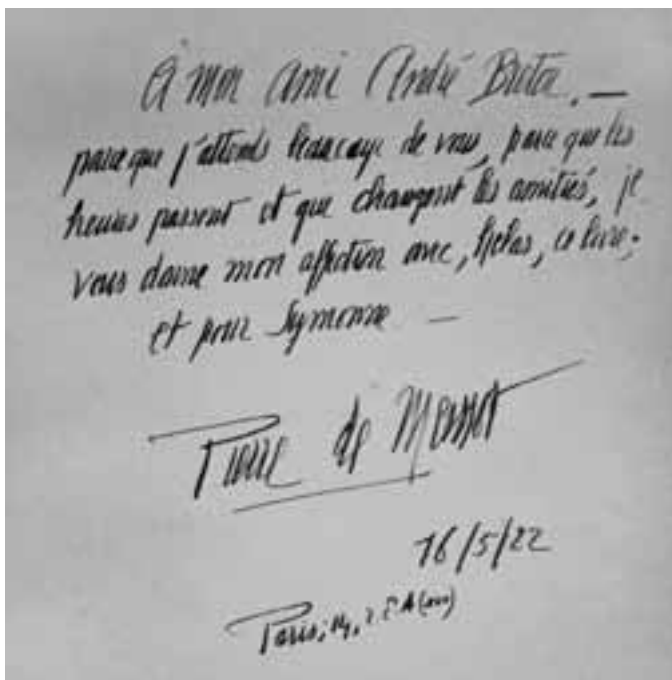 à mon ami André Breton. —
parce que j'attends beaucoup de vous, parce que les
heures passent et que changent les amitiés, je
vous donne mon affection avec, hélas, ce livre ;
et pour Symonne —
Pierre de Massot
16/5/22
Paris, 14,